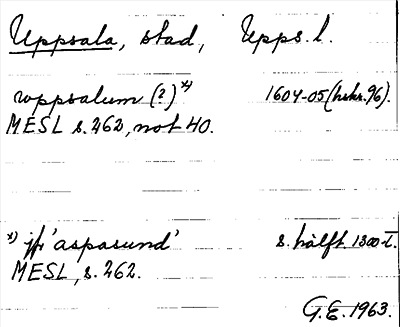 Uppsala, stad, Upps. l.
woppsalum (?) x) 1604-05 (hskr. 96).
MESL s. 262, not 40.
x) jfr 'aspasund' s. hälft 1300-t.
MESL, s. 262.
G.E. 1963.